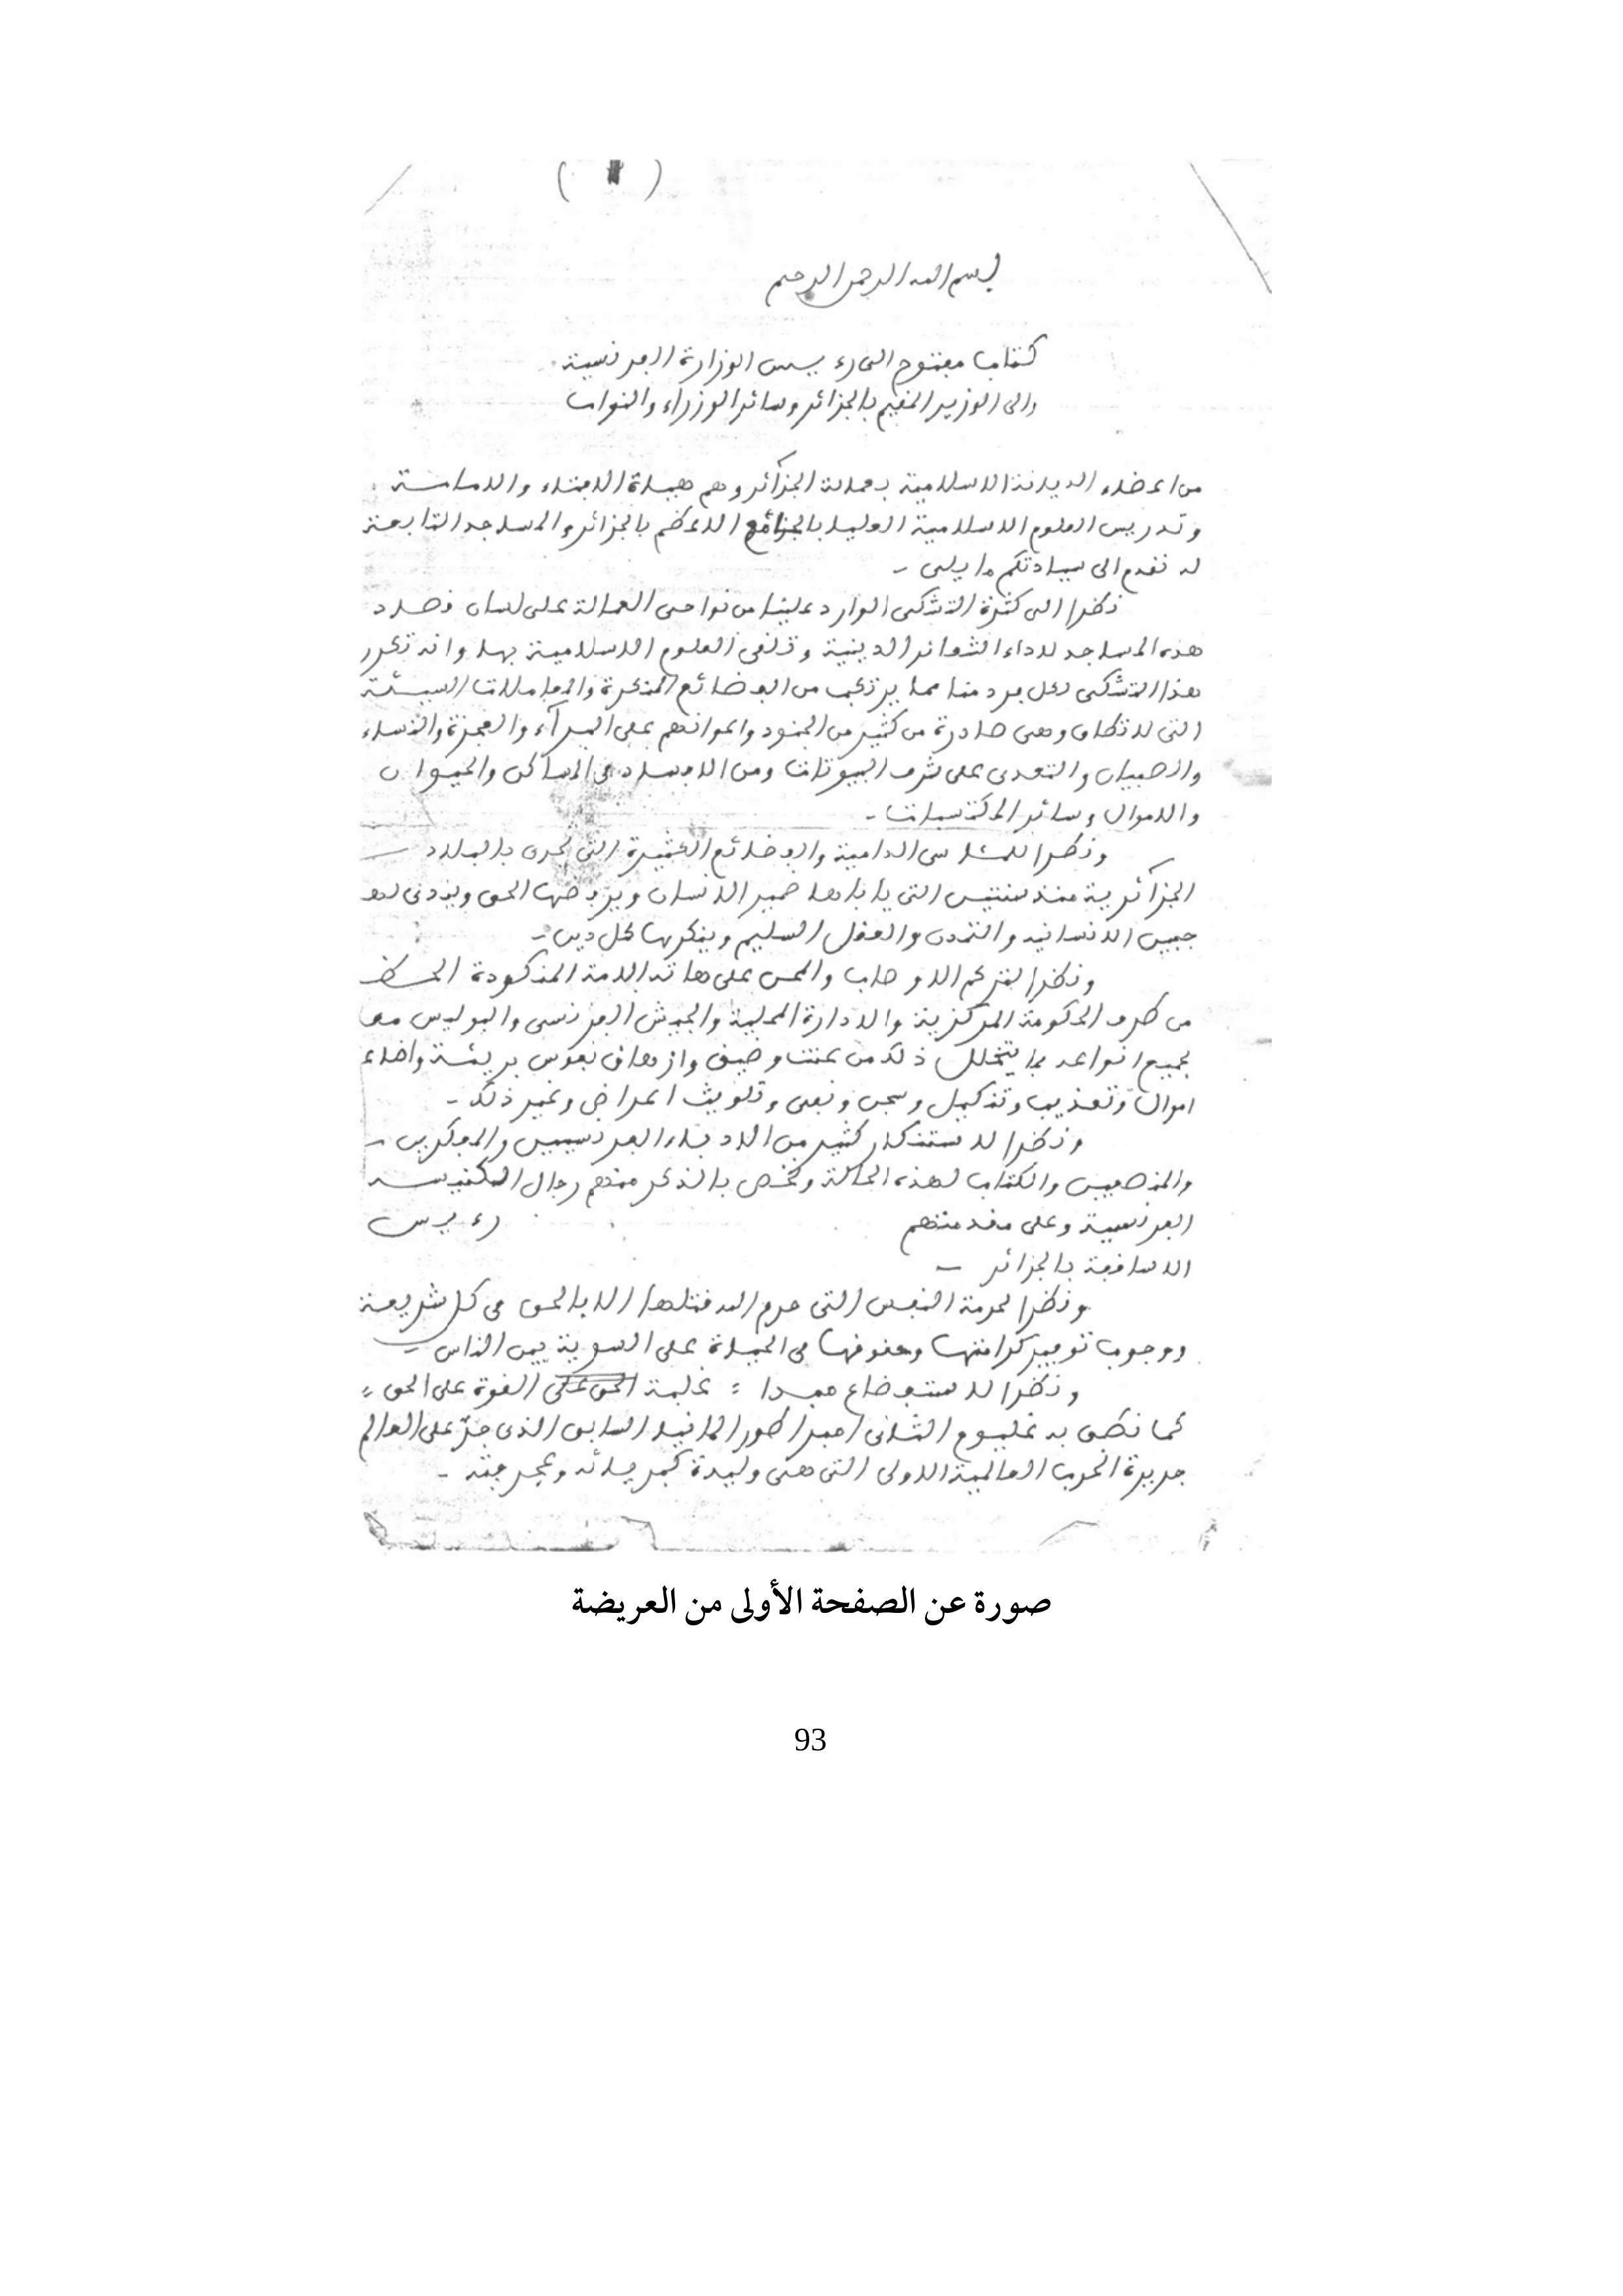 ( )
بسم الله الرحمن الرحيم
كتاب مفتوح الى رءيس الوزارة الفرنسية
والى الوزير المقيم بالجزائر وسائر الوزراء والنواب
من اعضاء الديانة الاسلامية بعمالة الجزائر وهم هيئة الافتاء والامامة
وتدريس العلوم الاسلامية العليا بالجامع الاعظم بالجزائر والمساجد التابعة
له نقدم الى سيادتكم ما يلى -
نظرا الى كثرة التشكى الوارد علينا من نواحى العمالة على لسان قصاد
هذه المساجد لاداء الشعائر الدينية وتلقى العلوم الاسلامية بها وانه تكرر
هذا التشكى لكل فرد منا مما يرتكب من الفضائع المنكرة والمعاملات السيئة
التى لا تطاق وهى صادرة من كثير من الجنود واعوانهم على البرآء والعجزة والنساء
والصبيان والتعدى على شرف البيوتات ومن الافساد فى المساكن والحيوان
والاموال وسائر المكتسبات -
ونظرا للمئاسى الدامية والفضائع الكثيرة التى تجرى بالبلاد
الجزائرية منذ سنتين التى ياباها ضمير الانسان ويرفضها الحق ويندى لها
جبين الانسانية والتمدن والعقل السليم وينكرها كل دين -
ونظرا لتراكم الاوصاب والمحن على هاته الامة المنكودة الحظ
من طرف الحكومة المركزية والادارة المحلية والجيش الفرنسى والبوليس معا
بجميع انواعه بما يتخلل ذلك من عنت وضيق وازهاق نفوس بريئة واضاعة
اموال وتعذيب وتنكيل وسجن ونفى وتلويث اعراض وغير ذلك -
ونظرا لاستنكار كثير من الادباء الفرنسيين والمفكرين -
والمنصفين والكتاب لهذه الحالة ونخص بالذكر منهم رجال الكنيسة
الفرنسية وعلى مقدمتهم رءيس
الاساقفة بالجزائر -
ونظرا لحرمة النفس التى حرم الله قتلها الا بالحق فى كل شريعة
ووجوب توفير كرامتها وحقوقها فى الحياة على السوية بين الناس -
ونظرا لاستفضاع مبدا : غلبة القوة على الحق =
كما نطق به غليوم الثانى امبراطور المانيا السابق الذى جرّ على العالم
جريرة الحرب العالمية الاولى التى هى وليدة كبريائه وعجرفته -
صورة عن الصفحة الأولى من العريضة
93